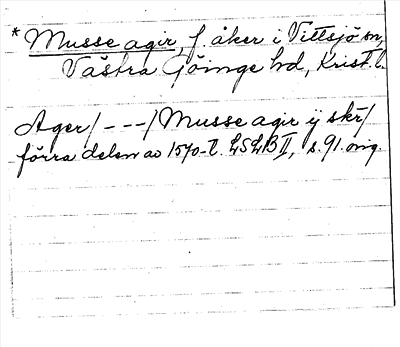 * Musse agir, f. åker i Vittsjö sn,
Västra Göinge hd, Krist. l.
Ager/ - - -/ Musse agir ij skr/
förra delen av 1570-t. LSLB II, s. 91. orig.